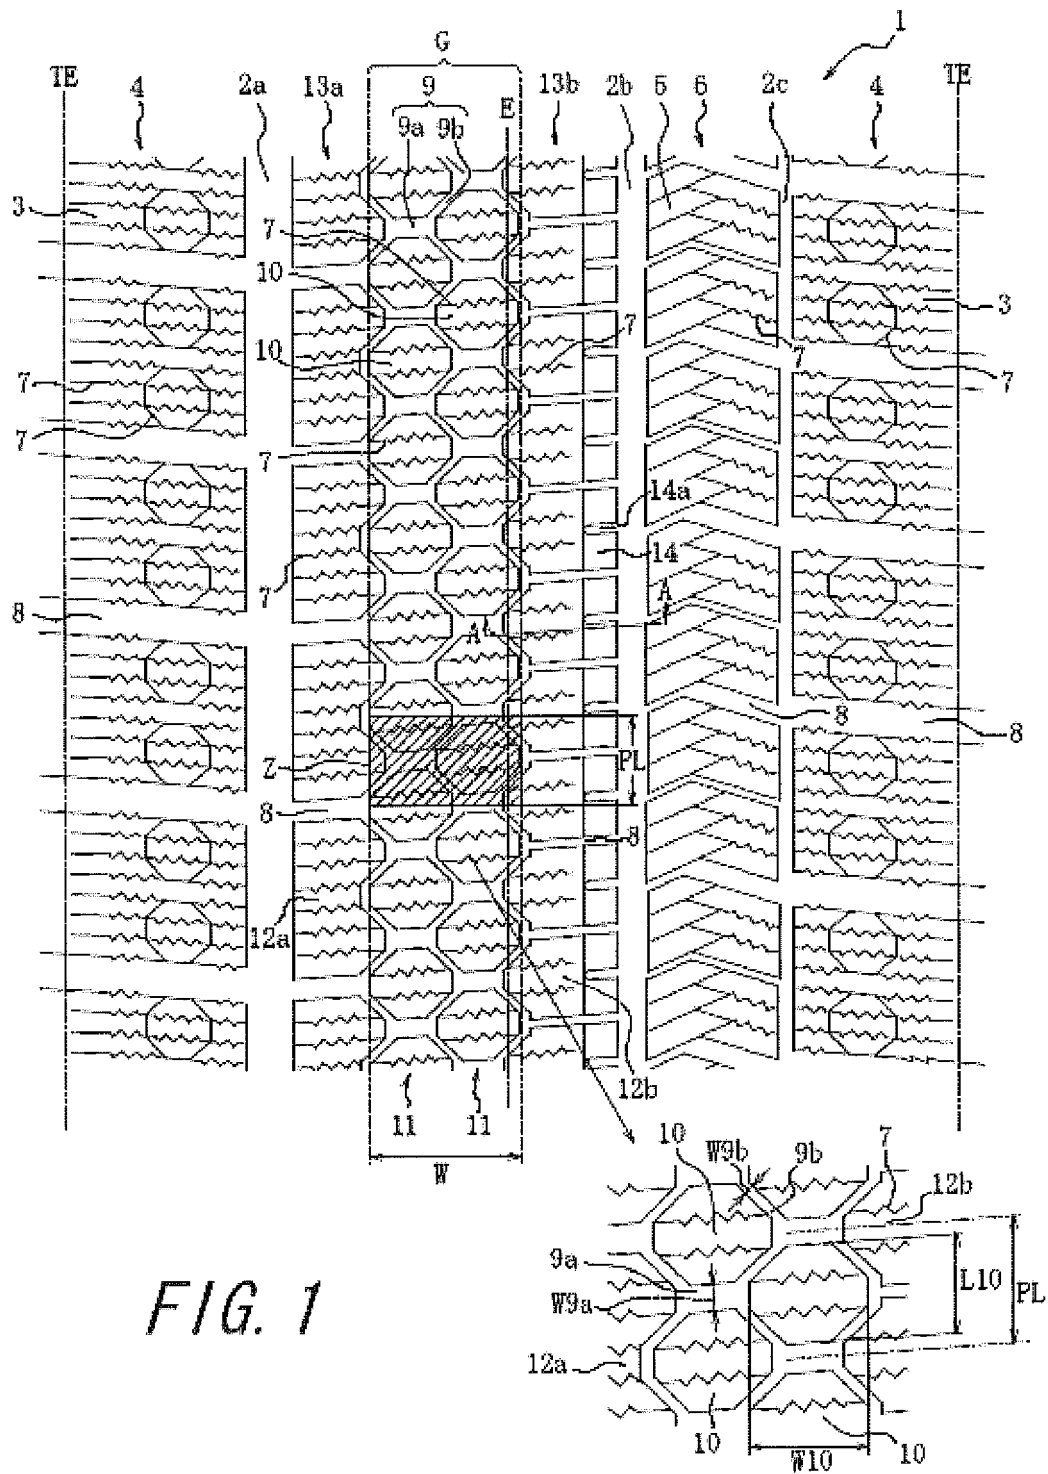 G
1
TE
4
2a
13a
9
9a 9b
E
13b
2b
5
6
2c
4
TE
3
7
10
10
7
3
7
7
7
7
7
7
7
14a
14
A
A
8
8
8
Z
PL
8
8
12a
12b
11
11
W
10
W9b
9b
7
12b
9a
W9a
L10
PL
12a
10
W10
10
FIG. 1